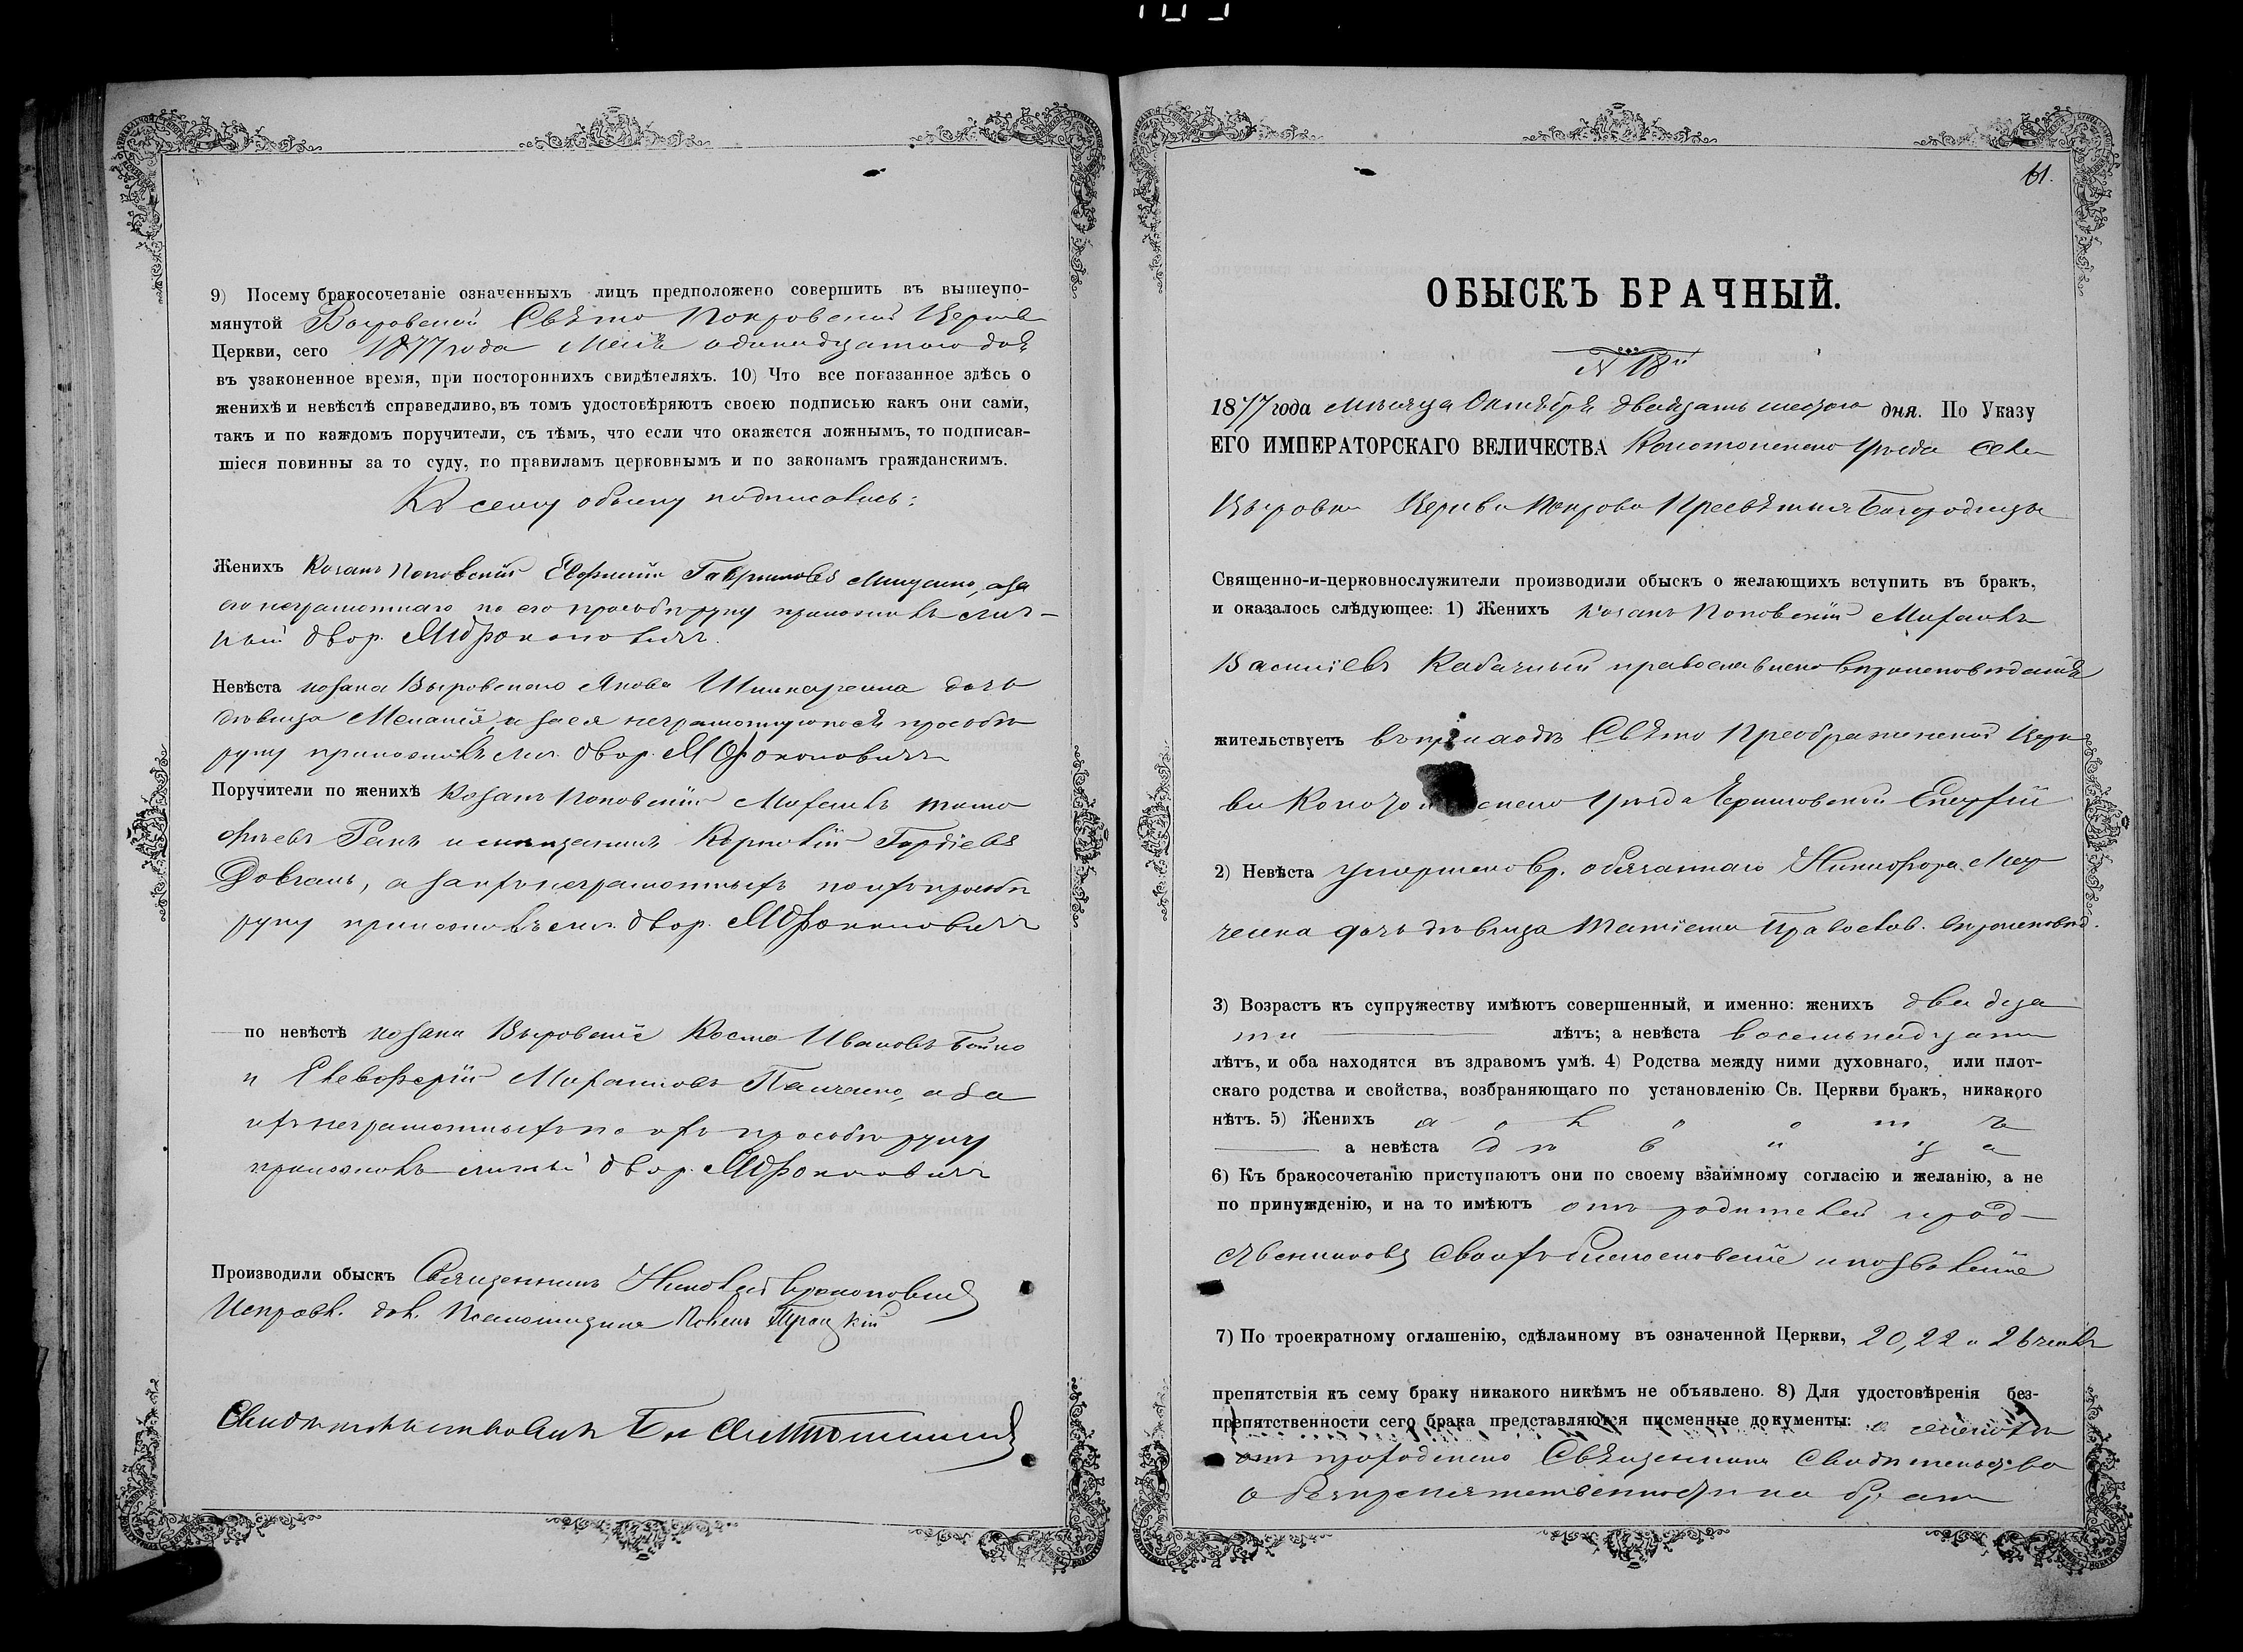 9) Посему бракосочетаніе означенныхъ лицъ предположено совершить въ вышеупо-
мянутой Выровской Свято Покровской Церкв
Церкви, сего 1877 года одинадцатого
въ узаконенное время, при постороннихъ свидѣтеляхъ. 10) Что все показанное здѣсь о
женихѣ и невѣстѣ справедливо, въ томъ удостовѣряютъ своею подписью какъ они сами,
такъ и по каждомъ поручители, съ тѣмъ, что если что окажется ложнымъ, то подписав-
шіеся повинны за то суду, по правиламъ церковнымъ и по законамъ гражданскимъ.
Къ сему обыску подписались:
Женихъ Козакъ Поповскій Евфимій Гавриловъ а за
его неграмотнаго по его прозьбѣ руку приложилъ лич-
ный двор. М Проконовичъ
Невѣста козака Выровского Якова Шинкаренка дочь
дѣвица Меланія, а за ея неграмотную по ея прозьбѣ
руку приложилъ лич. двор. М Проконовичъ
Поручители по женихѣ Козакъ Поповскій Михаилъ Тимо
фѣевъ Ракъ и мѣщанинъ Корнилій Гордіевъ
Довгаль, а за ихъ неграмотныхъ по ихъ прозьбѣ
руку приложилъ лич. двор. М Проконовичъ
по невѣстѣ козаки Выровскіе Косма Ивановъ Бойко
и Елевферій Михаиловъ а за
ихъ неграмотныхъ по ихъ прозьбѣ руку
приложилъ личный двор. М Проконовичъ
Производили обыскъ Священникъ Николай
Исправл. дол. Псаломщика Троцкій
61.
ОБЫСКЪ БРАЧНЫЙ.
№ 18й
1877 года мѣсяца Октября двадцать шестого дня. По Указу
ЕГО ИМПЕРАТОРСКАГО ВЕЛИЧЕСТВА Конотопского Уѣзда села
Выровки Церкви Покрова Пресвятыя Богородицы
Священно-и-церковнослужители производили обыскъ о желающихъ вступить въ бракъ,
и оказалось слѣдующее: 1) Женихъ Козакъ Поповскій Михаилъ
Василіевъ Кабачный православного вѣроисповѣданія
жительствуетъ въ приходѣ Свято Преображенской Церк
ви Уѣзда Черниговской Епархіи
2) Невѣста умершего вр. обязаннаго Никифора
дочь дѣвица Татіана Православ. вѣроисповѣд.
3) Возрастъ къ супружеству имѣютъ совершенный, и именно: женихъ двадца
ти лѣтъ; а невѣста восемьнадцати
лѣтъ, и оба находятся въ здравомъ умѣ. 4) Родства между ними духовнаго, или плот-
скаго родства и свойства, возбраняющаго по установленію Св. Церкви бракъ, никакого
нѣтъ. 5) Женихъ х о л о с т ъ
а невѣста д ѣ в и ц а
6) Къ бракосочетанію приступаютъ они по своему взаимному согласію и желанію, а не
по принужденію, и на то имѣютъ отъ родителей и род-
ственниковъ своихъ благословеніе и позволеніе
7) По троекратному оглашенію, сдѣланному въ означенной Церкви, 20, 22 и 26 числъ
препятствія къ сему браку никакого никѣмъ не объявлено. 8) Для удостовѣренія без-
препятственности сего брака представляются писменные документы: о
отъ приходского Священника Свидѣтельство
о безпрепятственности на бракъ